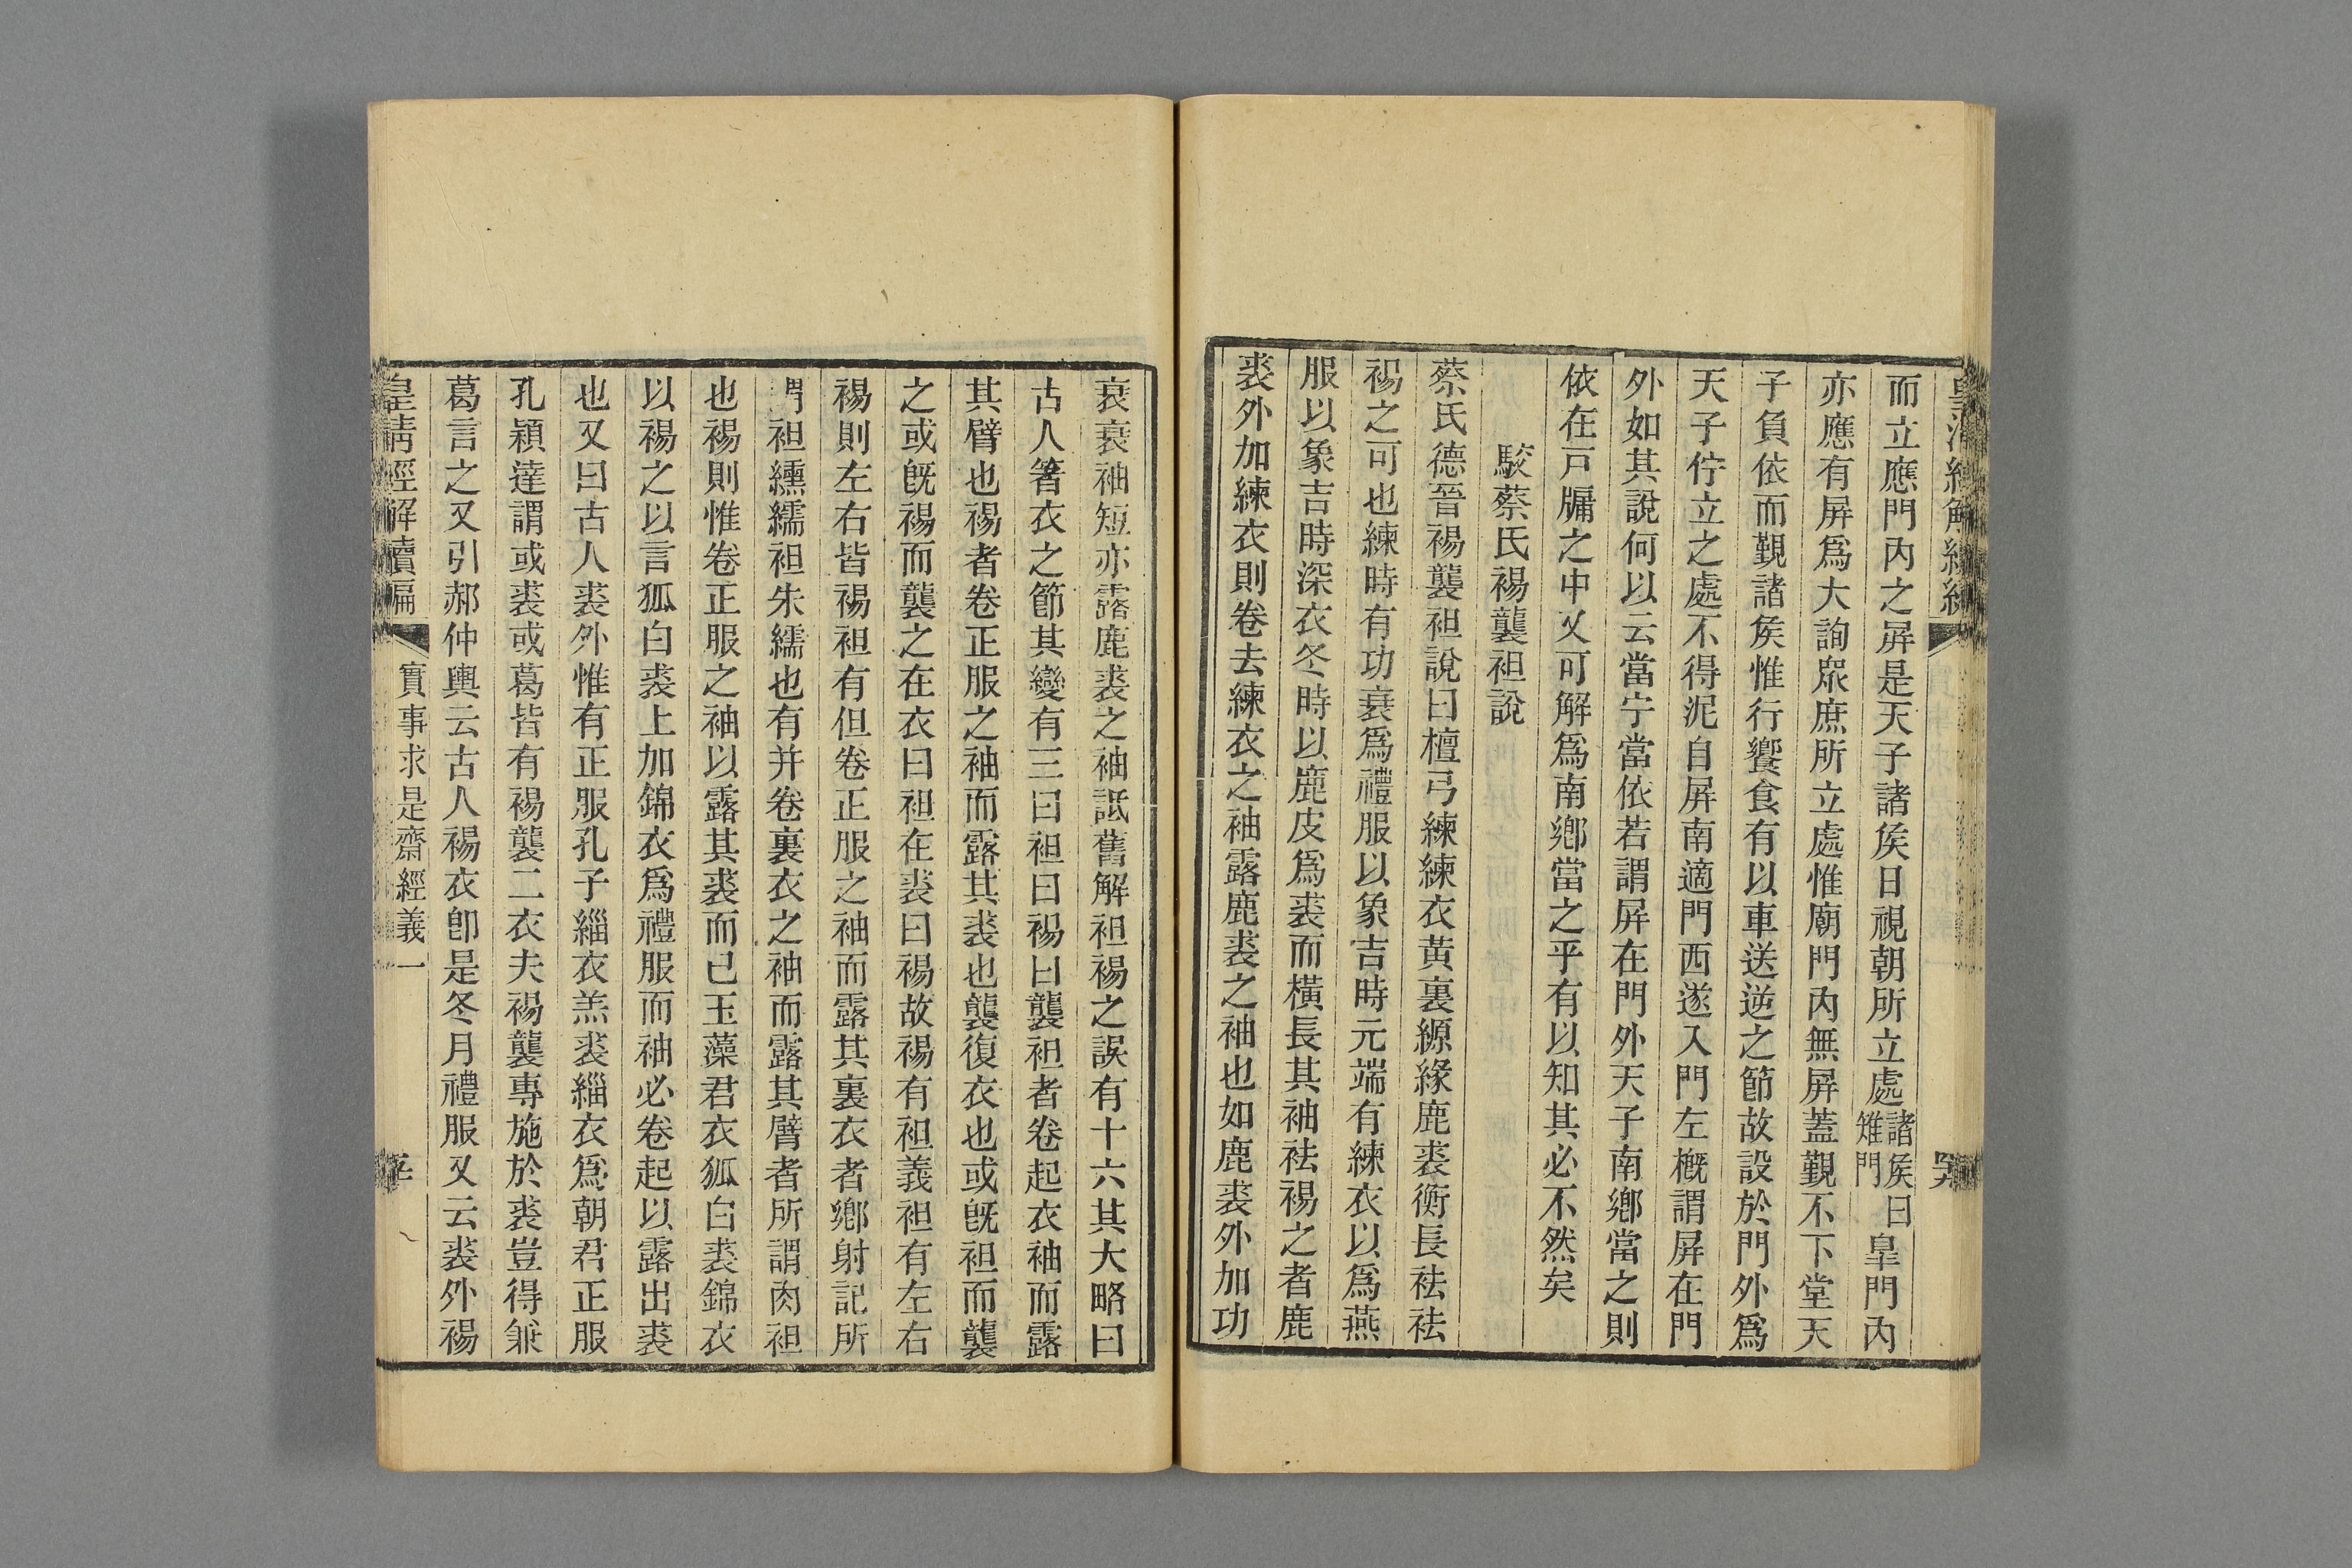 而立應門內之屛是天子諸矦日視朝所立處諸矦曰雉門皐門內
亦應有屛爲大詢衆庶所立處惟廟門內無屛蓋覲不下堂天
子負依而覲諸矦惟行饗食有以車送逆之節故設於門外爲
天子佇立之處不得泥自屛南適門西遂入門左槪謂屛在門
外如其說何以云當宁當依若謂屛在門外天子南鄕當之則
依在戸牖之中又可解爲南鄕當之乎有以知其必不然矣
駮蔡氏裼襲袒說
蔡氏德晉裼襲袒說曰檀弓練練衣黃裏縓緣鹿裘衡長袪袪
裼之可也練時有功衰爲禮服以象吉時元端有練衣以爲燕
服以象吉時深衣冬時以鹿皮爲裘而橫長其袖袪裼之者鹿
裘外加練衣則卷去練衣之袖露鹿裘之袖也如鹿裘外加功
衰衰袖短亦露鹿裘之袖詆舊解袒裼之誤有十六其大略曰
古人箸衣之節其變有三曰袒曰裼曰襲袒者卷起衣袖而露
其臂也裼者卷正服之袖而露其裘也襲復衣也或旣袒而襲
之或旣裼而襲之在衣曰袒在裘曰裼故裼有袒義袒有左右
裼則左右皆裼袒有但卷正服之袖而露其裏衣者鄕射記所
謂袒纁繻袒朱繻也有并卷裏衣之袖而露其臂者所謂肉袒
也裼則惟卷正服之袖以露其裘而已玉藻君衣狐白裘錦衣
以裼之以言狐白裘上加錦衣爲禮服而袖必卷起以露出裘
也又曰古人裘外惟有正服孔子緇衣羔裘緇衣爲朝君正服
孔穎達謂或裘或葛皆有裼襲二衣夫裼襲專施於裘豈得兼
葛言之又引郝仲輿云古人裼衣卽是冬月禮服又云裘外裼
皇淸經解續編
實事求是齋經義一